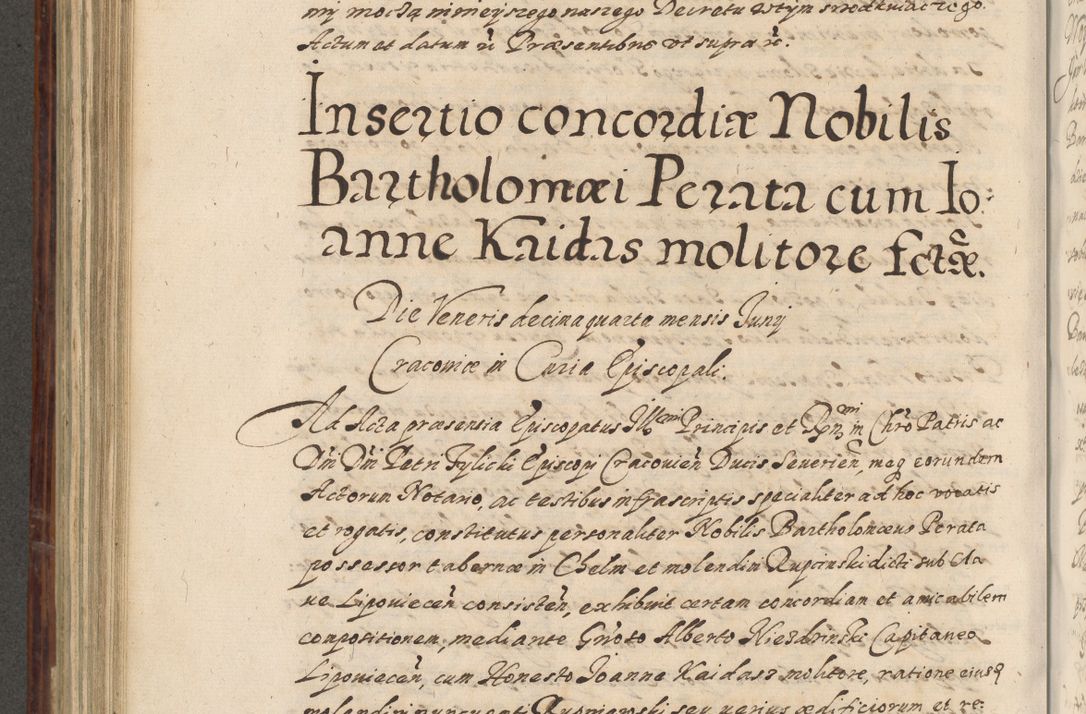 mj mocżą ninieyszego naszego Decretu
Actum et datum ut Præsentibus vt supra
Insertio concordiæ Nobilis
Bartholomæi Perata cum Io:
anne Kaidas molitore fctæ.
Die Veneris decima quarta mensis Junij
Cracoviæ in Curia Episcopali.
Ad Acta præsentia Episcopatus Illmi Principis et Rmi in Chro Patris ac
Dni Dni Petri Tylicki Episcopi Cracovien Ducis Severien, meq eorundem
Actorum Notario, ac testibus infrascriptis specialiter ad hoc vocatis
et rogatis, constitutus personaliter Nobilis Bartholomæus Perata
possessor tabernæ in Chelm et molendini Rupcinski dicti sub Cla
ue Lipoviecen consisten, exhibuit certam concordiam et amicabilem
compositionem, mediante Groso Alberto Niezdzinski Capitaneo
Lipoviecen, cum Honesto Joanne Kaidass molitore, ratione eiusq
molendini nuncupati seu verius ædificiorum et re: